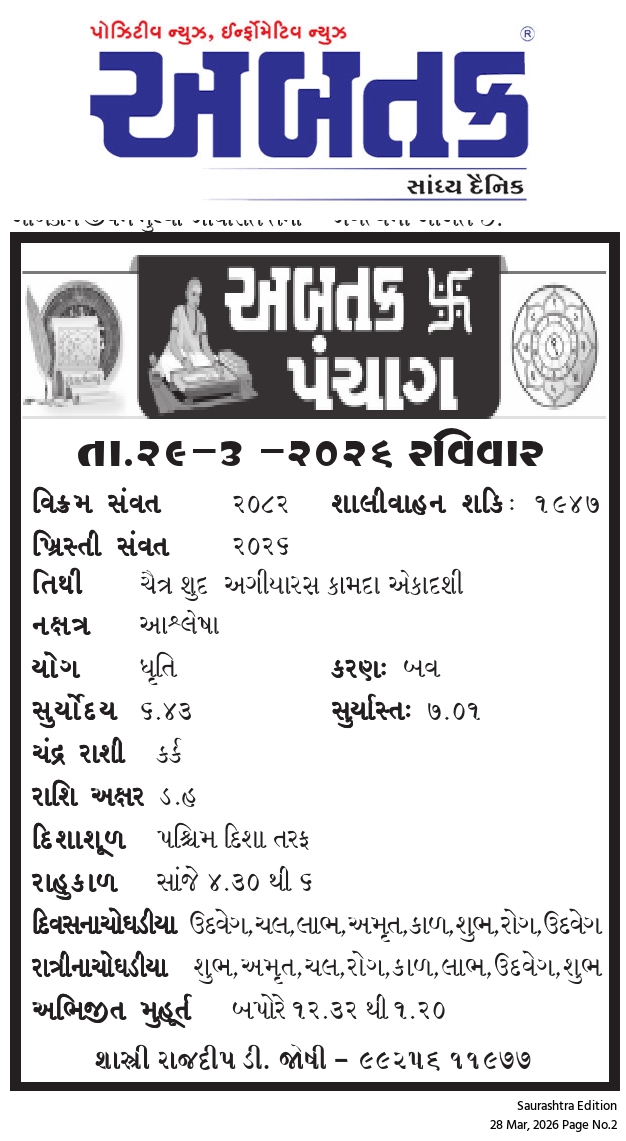 પોઝિટીવ ન્યુઝ, ઈન્ફોર્મેટિવ ન્યુઝ
અબતક ®
સાંધ્ય દૈનિક
અબતક 卐
પંચાગ
તા.૨૯-૩ -૨૦૨૬ રવિવાર
વિક્રમ સંવત ૨૦૮૨ શાલીવાહન શકિ: ૧૯૪૭
ખ્રિસ્તી સંવત ૨૦૨૬
તિથી ચૈત્ર શુદ અગીયારસ કામદા એકાદશી
નક્ષત્ર આશ્લેષા
યોગ ધૃતિ કરણ: બવ
સુર્યોદય ૬.૪૩ સુર્યાસ્ત: ૭.૦૧
ચંદ્ર રાશી કર્ક
રાશિ અક્ષર ડ.હ
દિશાશૂળ પશ્ચિમ દિશા તરફ
રાહુકાળ સાંજે ૪.૩૦ થી ૬
દિવસનાચોઘડીયા ઉદવેગ,ચલ,લાભ,અમૃત,કાળ,શુભ,રોગ,ઉદવેગ
રાત્રીનાચોઘડીયા શુભ,અમૃત,ચલ,રોગ,કાળ,લાભ,ઉદવેગ,શુભ
અભિજીત મુહૂર્ત બપોરે ૧૨.૩૨ થી ૧.૨૦
શાસ્ત્રી રાજદીપ ડી. જોષી - ૯૯૨૫૬ ૧૧૯૭૭
Saurashtra Edition
28 Mar, 2026 Page No.2